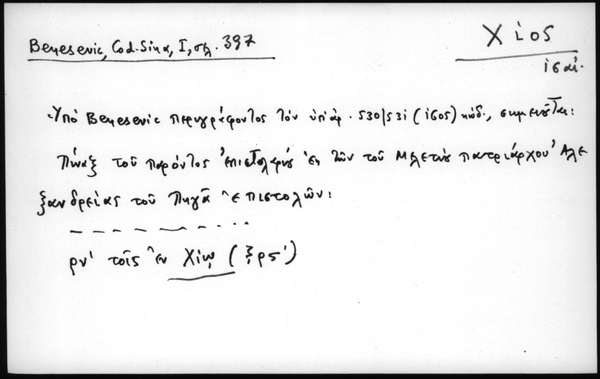 Benesevic, Cod. Sina, I, σελ. 397
Χίος
ις αἰ.
Ὑπό Benesevic περιγράφοντος τόν ὑπ' ἀρ. 530/531 (1605) κώδ., σημειοῦται:
Πίναξ τοῦ παρόντος ἐπιστολαρίου ἐκ τῶν τοῦ Μελετίου πατριάρχου Ἀλε
ξανδρείας τοῦ Πηγᾶ ἐπιστολῶν:
— — — — — . . . . .
ρν' τοῖς ἐν Χίῳ (ξρς')